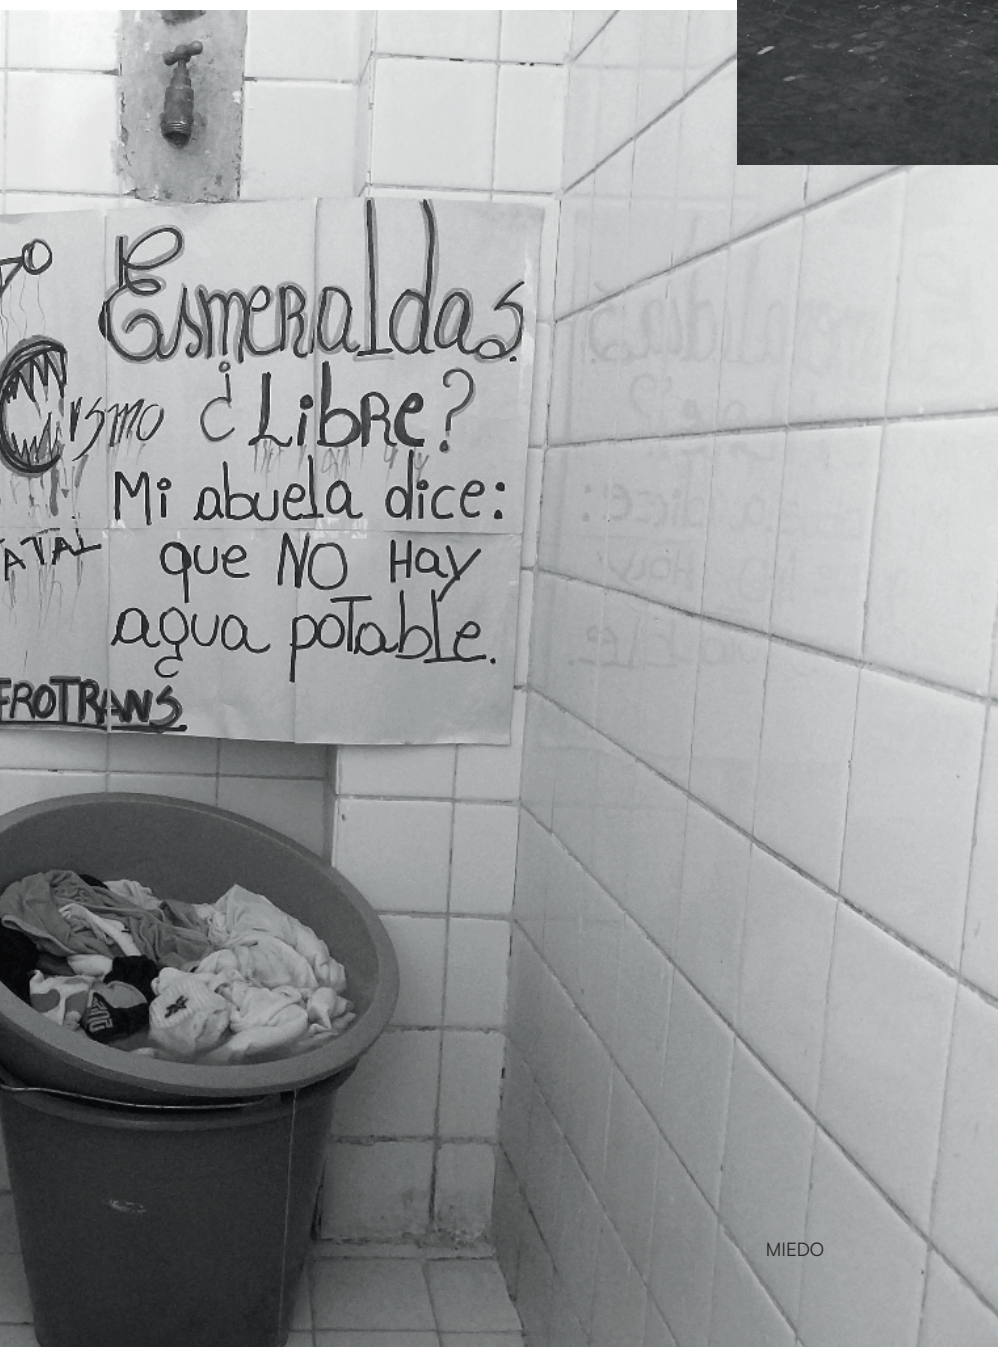 Esmeraldas
Cismo ¿Libre?
Mi abuela dice:
que NO Hay
agua potable.
MIEDO